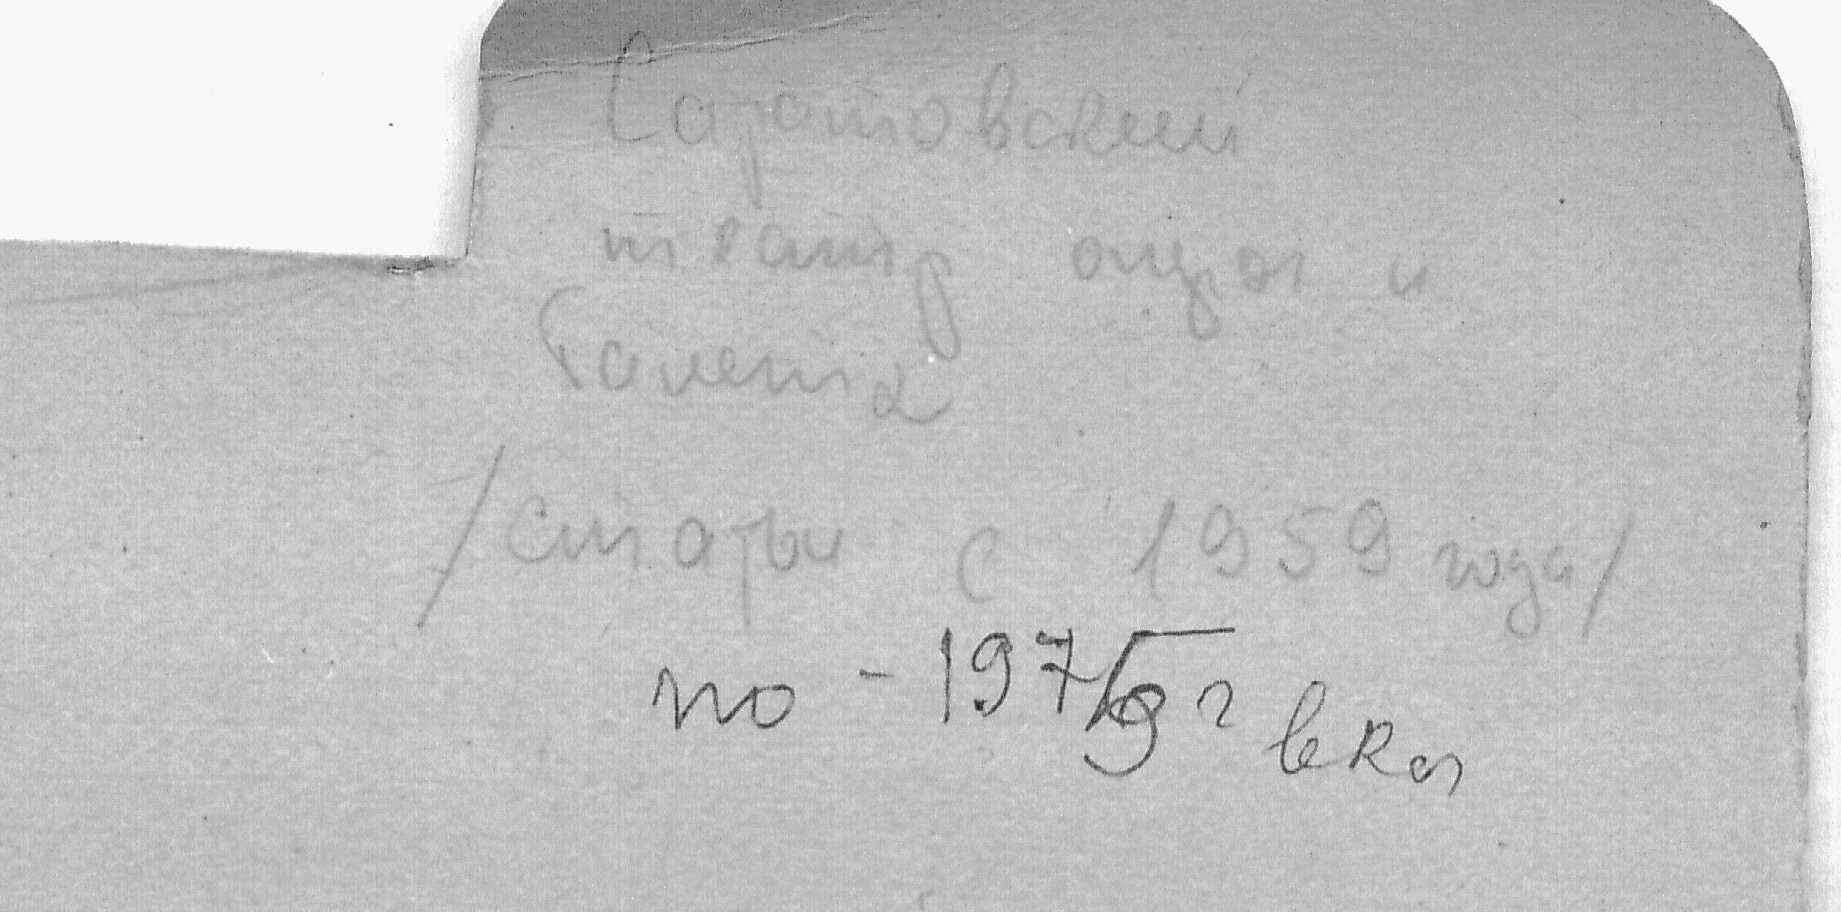 Саратовский
театр оперы и
балета
/статьи с 1959 года/
по - 1979 г вкл